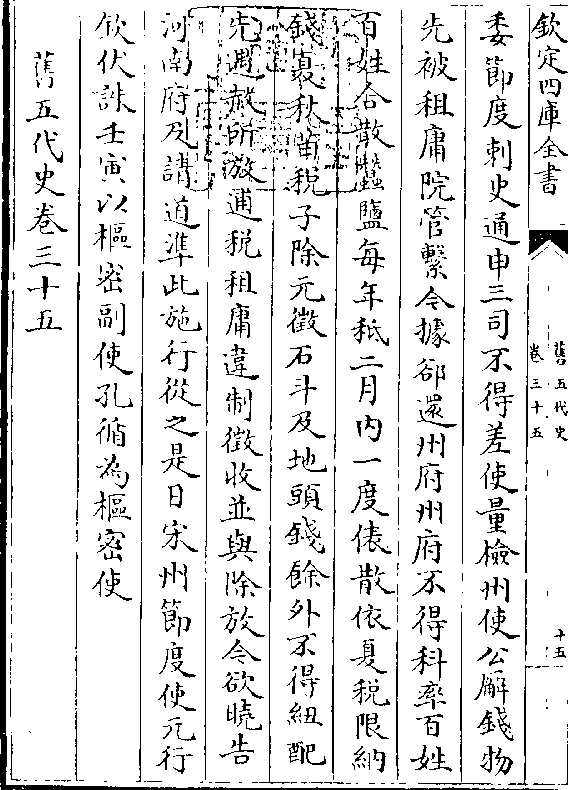 欽定四庫全書
舊五代史
卷三十五
十五
委節度刺史通申三司不得差使量檢州使公廨錢物
先被租庸院管繫今據郤還州府州府不得科率百姓
百姓合散蠶鹽每年秪二月内一度俵散依夏税限納
錢夏秋苗税子除元徵石斗及地頭錢餘外不得紐配
先遇赦所放逋税租庸違制徵收並與除放今欲曉告
河南府及諸道準此施行從之是日宋州節度使元行
欽伏誅壬寅以樞密副使孔循為樞密使
舊五代史卷三十五